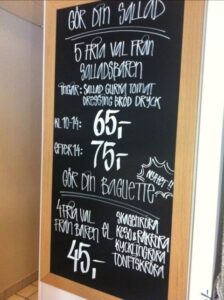 GÖR DIN SALLAD
5 FRIA VAL FRÅN
SALLADSBAREN
INGÅR: SALLAD GURKA TOMAT
DRESSING BRÖD DRYCK
KL 10-14: 65,-
EFTER 14: 75,-
NYHET!!
GÖR DIN BAGUETTE
4 FRIA VAL
FRÅN BAREN EL
45,-
SKAGENRÖRA
KESO & RÄKRÖRA
KYCKLINGRÖRA
TONFISKRÖRA